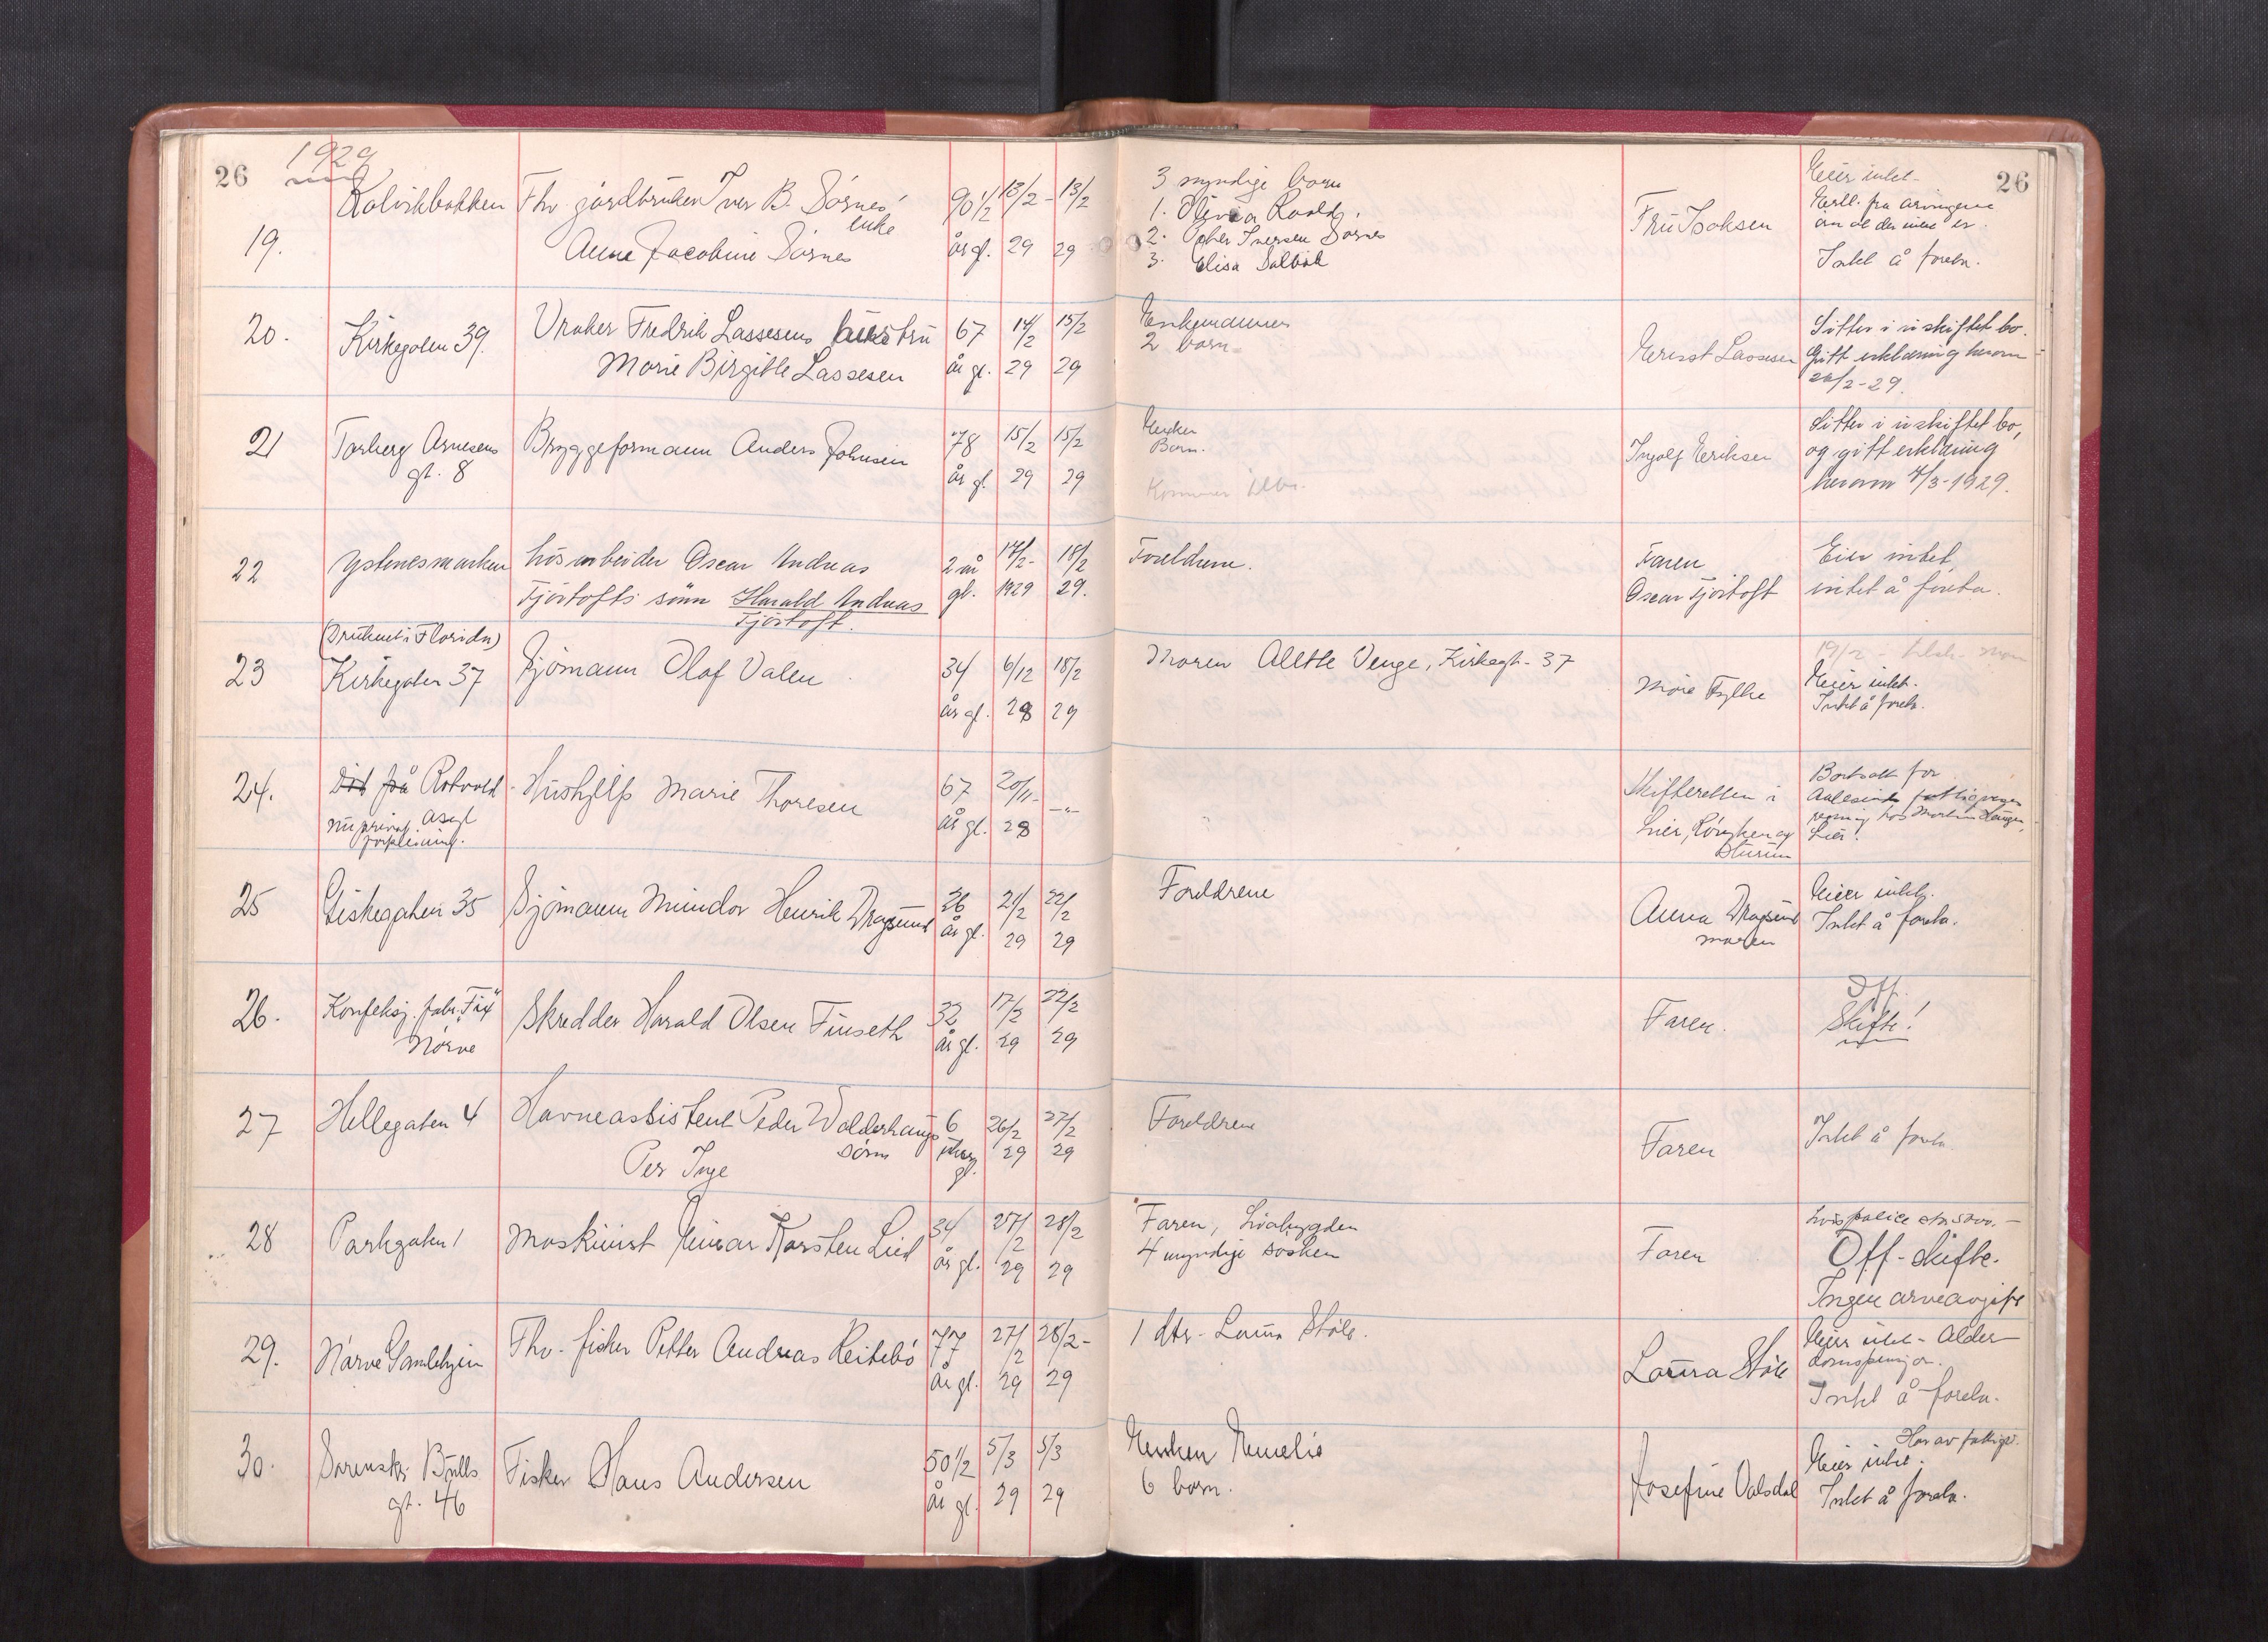 26
1929
26
19.
Kolvikbakken
Thv. gårdbruker Iver B. Sørnes'
enke
Anne Jacobine Sørnes
90 1/2
år gl.
13/2 -
29
13/2
29
3 myndige barn
1. Olivea Roald,
2. Peter Iversen Sørnes
3. Elisa Dalbøk
Fru Isaksen
Eier intet -
Erkl. fra arvingene
om at der intet er.
Intet å foreta.
20.
Kirkegaten 39.
Vraker Fredrik Lassesens hustru
Marie Birgitte Lassesen
67
år gl.
14/2
29
15/2
29
Enkemannen
2 barn
Ernst Lassesen
Sitter i uskiftet bo.
Gitt erklæring herom
26/2-29.
21
Torberg Arnesens
gt. 8
Bryggeformann Anders Johnsen
78
år gl
15/2
29
15/2
29
Enken
Barn.
Kommer
Ingolf Eriksen
Sitter i uskiftet bo,
og gitt erklæring
herom 4/3-1929.
22
Ystenesmarken
løsarbeider Oscar Andreas
Fjørtofts sønn Harald Andreas
Fjørtoft.
2 år
gl.
17/2-
1929
18/2
29.
Foreldrene.
Faren
Oscar Fjørtoft
Eier intet,
intet å foreta.
23
(Druknet i Florida)
Kirkegaten 37
Sjømann Olaf Valen
34
år gl.
6/12
28
18/2
29
Moren Alette Venge, Kirkegt. 37
Møre Fylke
19/2 -
Eier intet.
Intet å foreta.
24.
Rotvold
Asyl
nu privat
forpleining.
Hushjelp Marie Thoresen
67
år gl.
20/11-
28
-"-
Skifteretten i
Lier, Røyken og
Hurum
Bortsatt for
Aalesunds fattigvesens
regning hos Martin Haugen,
Lier!
25
Giskegaten 35
Sjømann Mindor Henrik Dragsund
26
år gl.
21/2
29
22/2
29
Foreldrene
Anna Dragsund
moren
Eier intet.
Intet å foreta.
26.
Konfeksj. fabr. "Fix"
Nørve
Skredder Harald Olsen Finseth
32
år gl.
17/2
29
22/2
29
Faren.
Off.
Skifte!
27
Hellegaten 4
Havneassistent Peder Walderhaugs
sønn
Per Inge
6
gl.
26/2
29
27/2
29
Foreldrene
Faren
Intet å foreta
28
Parkgaten 1
Maskinist Einar Karsten Lied
34
år gl.
27/2
29
28/2
29
Faren, Liabygden
4 myndige søsken
Faren
Off. skifte.
Ingen arveavgift
29.
Nørve Gamlehjem
Thv. fisker Petter Andreas Reitebø
77
år gl.
27/2
29
28/2-
29
1 dtr. Laura Støle.
Laura Støle
Eier intet - Alder-
domspensjon.
Intet å foreta.
30.
Sorenskr. Bulls
gt. 46
Fisker Hans Andersen
50 1/2
år gl
5/3
29
5/3
29
Enken Emelie
6 barn.
Josefine Valsdal
Har av fattigv.
Eier intet.
Intet å foreta.